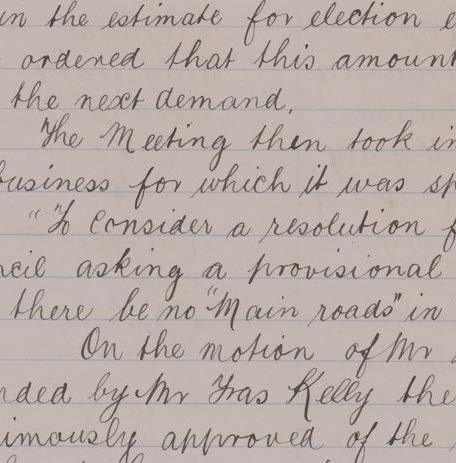 in the estimate for election e
ordered that this amount
the next demand.
The Meeting then took in
business for which it was sp
"To Consider a resolution f
ncil asking a provisional
there be no "Main roads" in
On the motion of Mr
nded by Mr Fras Kelly the
imously approved of the